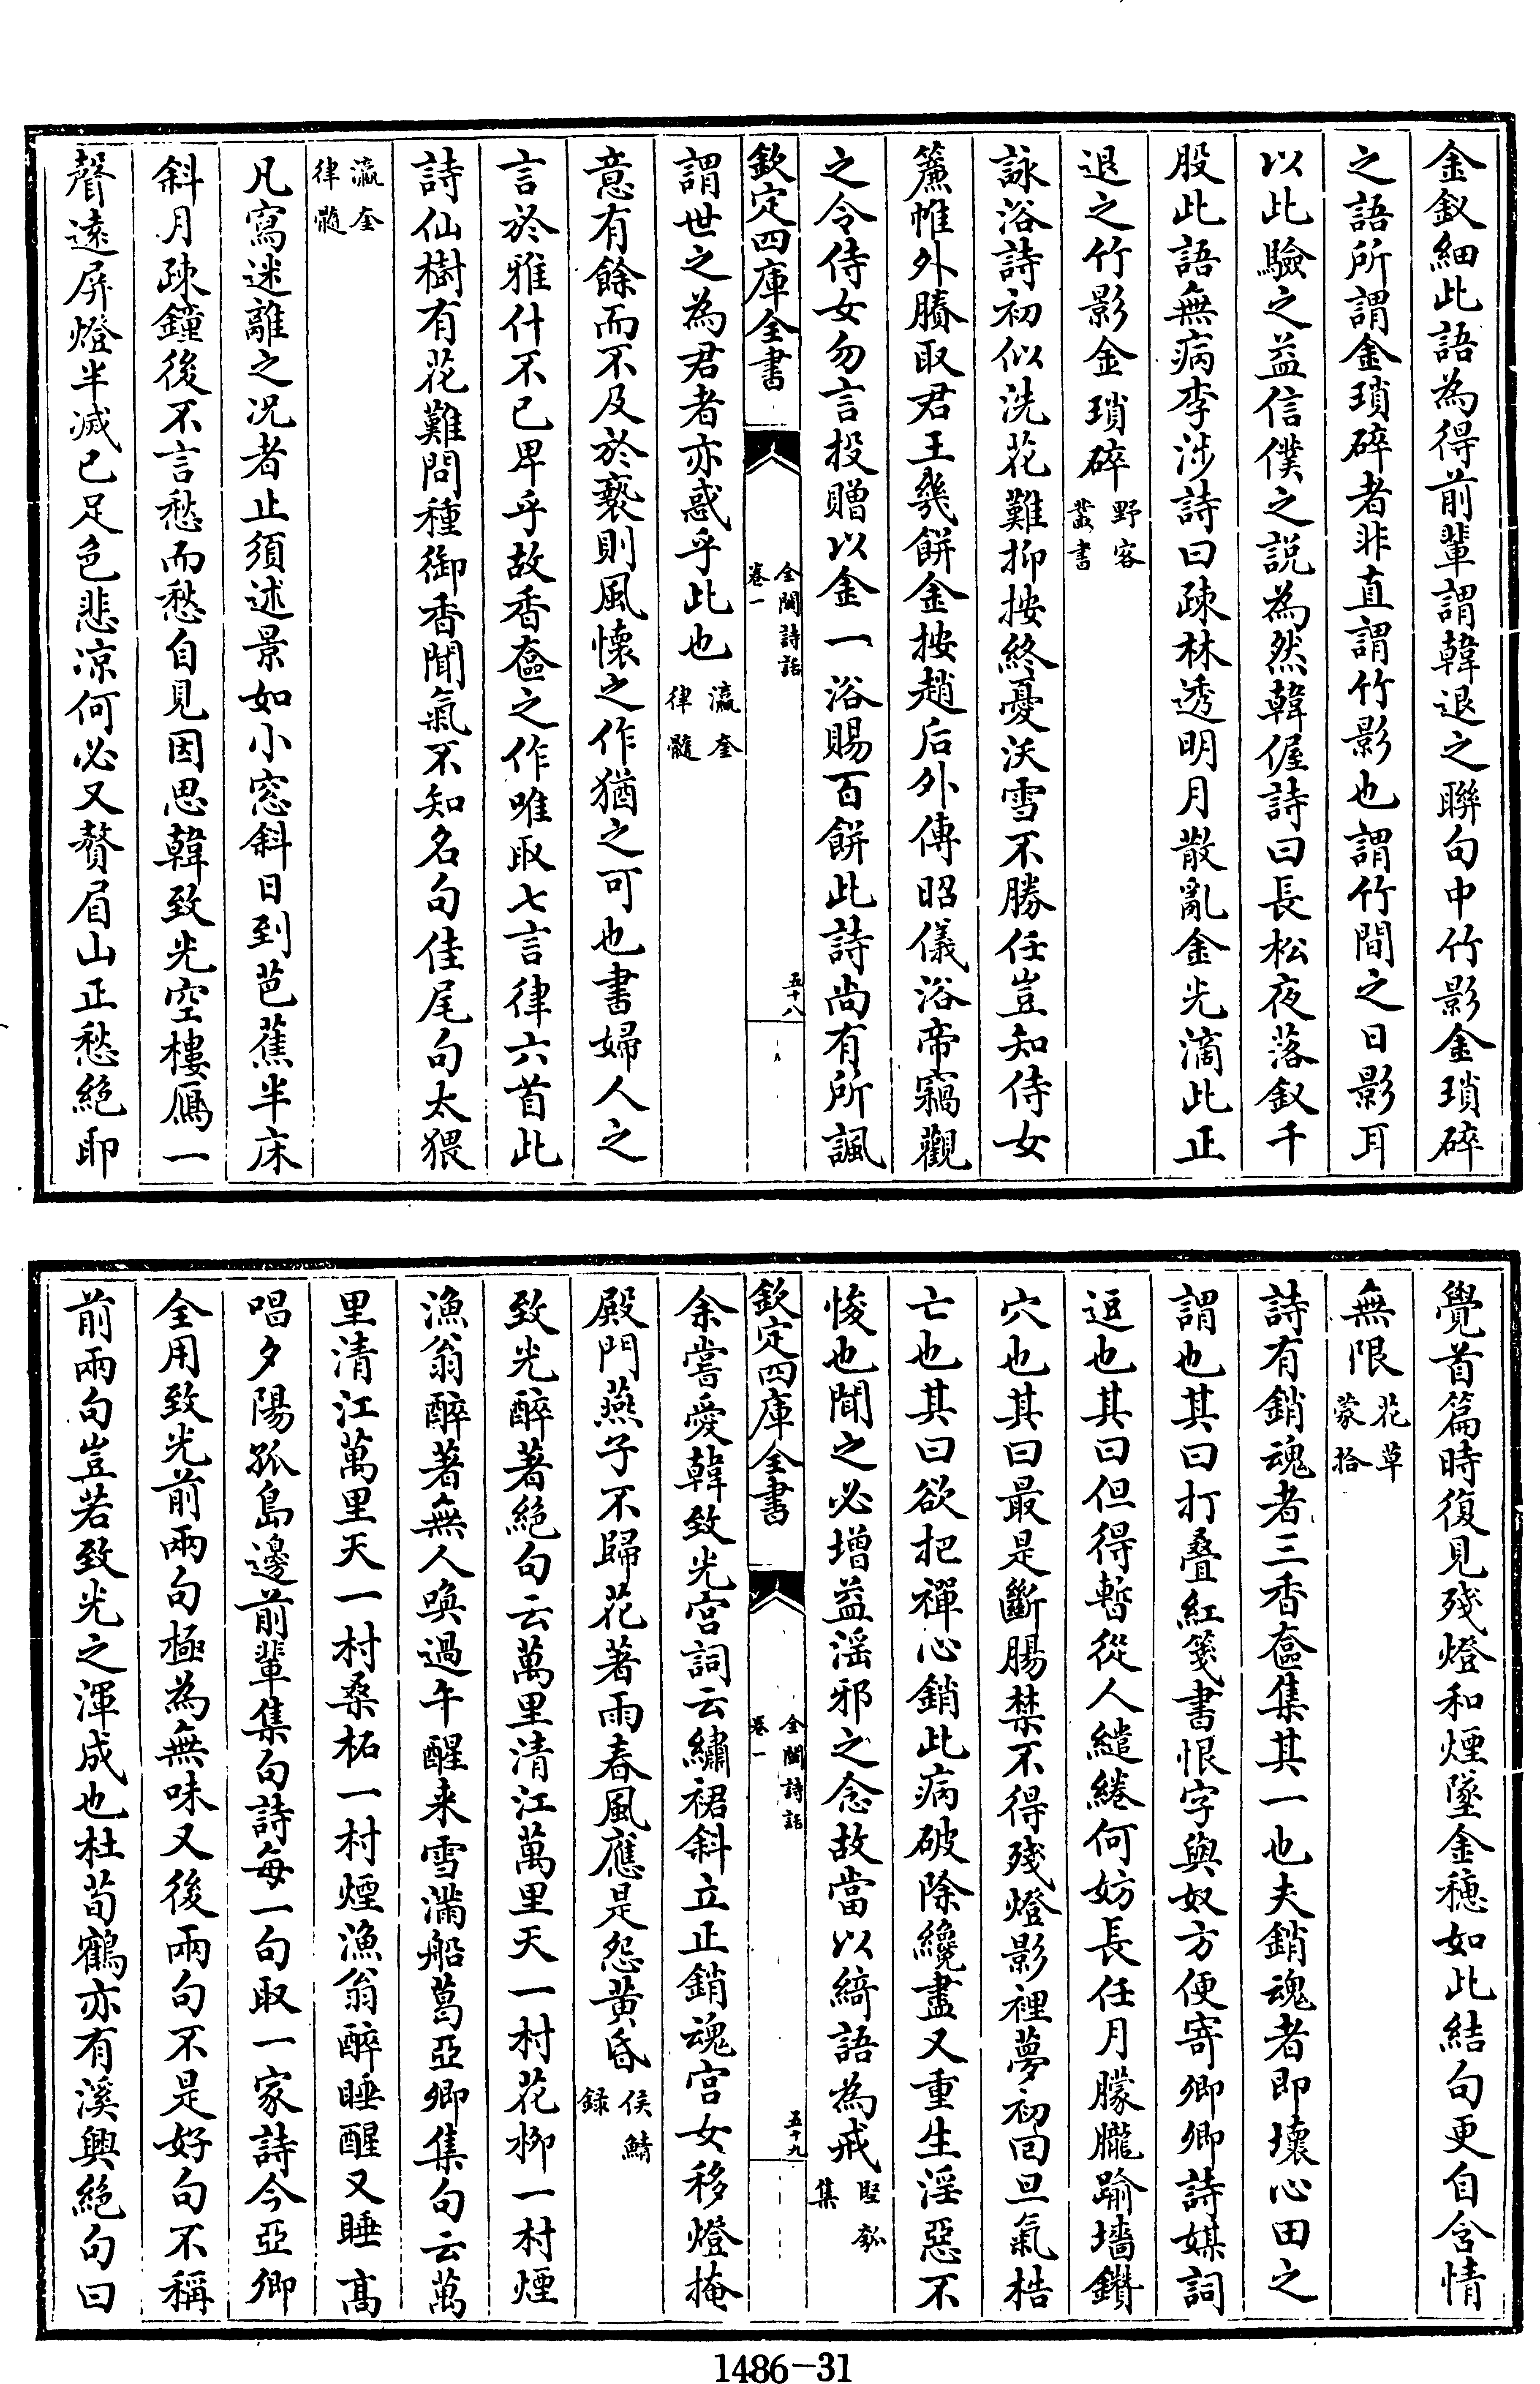 金釵細此語為得前輩謂韓退之聯句中竹影金瑣碎
之語所謂金瑣碎者非直謂竹影也謂竹間之日影耳
以此驗之益信僕之説為然韓偓詩曰長松夜落釵千
股此語無病李涉詩曰疎林透明月散亂金光滴此正
退之竹影金瑣碎野客叢書
詠浴詩初似洗花難抑按終憂沃雪不勝任豈知侍女
簾帷外賸取君王幾餅金按趙后外傳昭儀浴帝竊觀
之令侍女勿言投贈以金一浴賜百餅此詩尚有所諷
欽定四庫全書 全閩詩話 卷一 五十八
謂世之為君者亦惑乎此也瀛奎律髓
意有餘而不及於褻則風懷之作猶之可也書婦人之
言於雅什不已卑乎故香奩之作唯取七言律六首此
詩仙樹有花難問種御香聞氣不知名句佳尾句太猥
瀛奎律髓
凡寫迷離之况者止須述景如小窓斜日到芭蕉半床
斜月疎鐘後不言愁而愁自見因思韓致光空樓雁一
聲遠屏燈半滅已足色悲凉何必又贅眉山正愁絶耶
覺首篇時復見殘燈和煙墜金穗如此結句更自含情
無限花草蒙拾
詩有銷魂者三香奩集其一也夫銷魂者即壞心田之
謂也其曰打叠紅箋書恨字與奴方便寄卿卿詩媒詞
逗也其曰但得暫從人繾綣何妨長任月朦朧踰墻鑽
穴也其曰最是斷腸禁不得殘燈影裡夢初囘旦氣梏
亡也其曰欲把禪心銷此病破除纔盡又重生淫惡不
悛也聞之必增益淫邪之念故當以綺語為戒堅瓠集
欽定四庫全書 全閩詩話 卷一 五十九
余嘗愛韓致光宫詞云繡裙斜立正銷魂宫女移燈掩
殿門燕子不歸花著雨春風應是怨黄昏侯鯖録
致光醉著絶句云萬里清江萬里天一村花栁一村煙
漁翁醉著無人喚過午醒来雪滿船葛亞卿集句云萬
里清江萬里天一村桑柘一村煙漁翁醉睡醒又睡高
唱夕陽孤島邊前輩集句詩每一句取一家詩今亞卿
全用致光前兩句極為無味又後兩句不是好句不稱
前兩句豈若致光之渾成也杜荀鶴亦有溪興絶句曰
1486-31